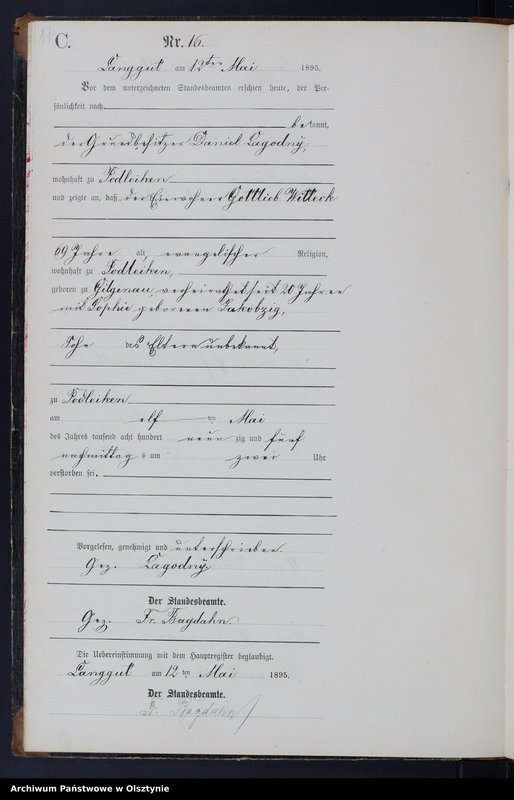 C.
Nr. 16.
Langgut am 12ten Mai 1895.
Vor dem unterzeichneten Standesbeamten erschien heute, der Per-
sönlichkeit nach
bekannt,
der Grundbesitzer Daniel Lagodny,
wohnhaft zu Podleiken
und zeigte an, daß der Einwohner Gottlieb Witteck
69 Jahre alt, evangelischer Religion,
wohnhaft zu Podleiken,
geboren zu Gilgenau, verheirathet seit 20 Jahren
mit Sophie geborenen Jakobzig,
Sohn der Eltern unbekannt,
zu Podleiken
am elf ten Mai
des Jahres tausend acht hundert neun zig und fünf
nachmittags um zwei Uhr
verstorben sei.
Vorgelesen, genehmigt und unterschrieben.
Gez. Lagodny
Der Standesbeamte.
Gez. Fr. Bagdahn.
Die Uebereinstimmung mit dem Hauptregister beglaubigt.
Langgut am 12 ten Mai 1895.
Der Standesbeamte.
Fr. Bagdahn
Archiwum Państwowe w Olsztynie